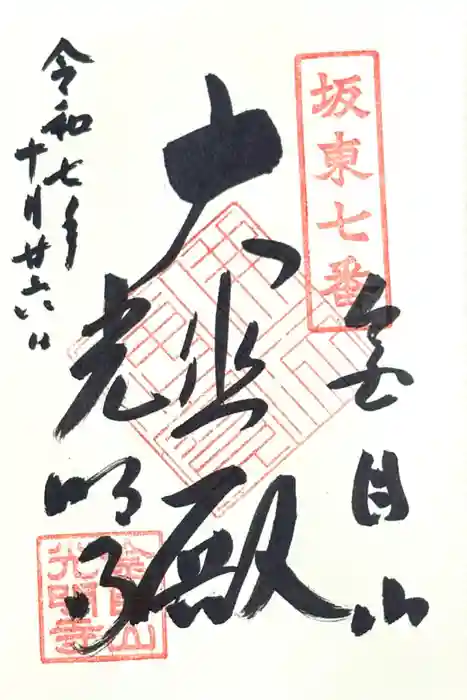 坂東七番
金目山
大悲殿
光明寺
令和七年
十月廿六日
金目山
光明寺